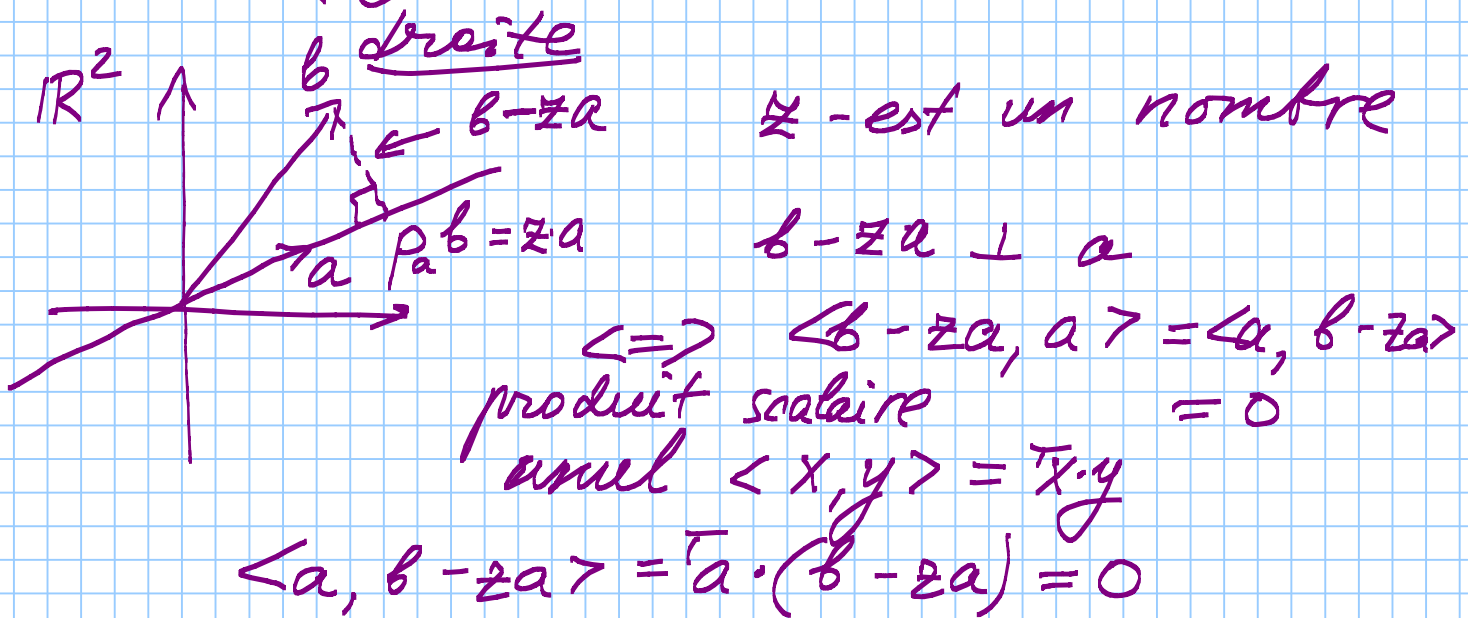 droite
R² b b-za z - est un nombre
a Pₐb = z·a b - za ⊥ a
<=> <b - za, a> = <a, b-za>
produit scalaire = 0
usuel <x, y> = ᵀx·y
<a, b - za> = ᵀa·(b - za) = 0